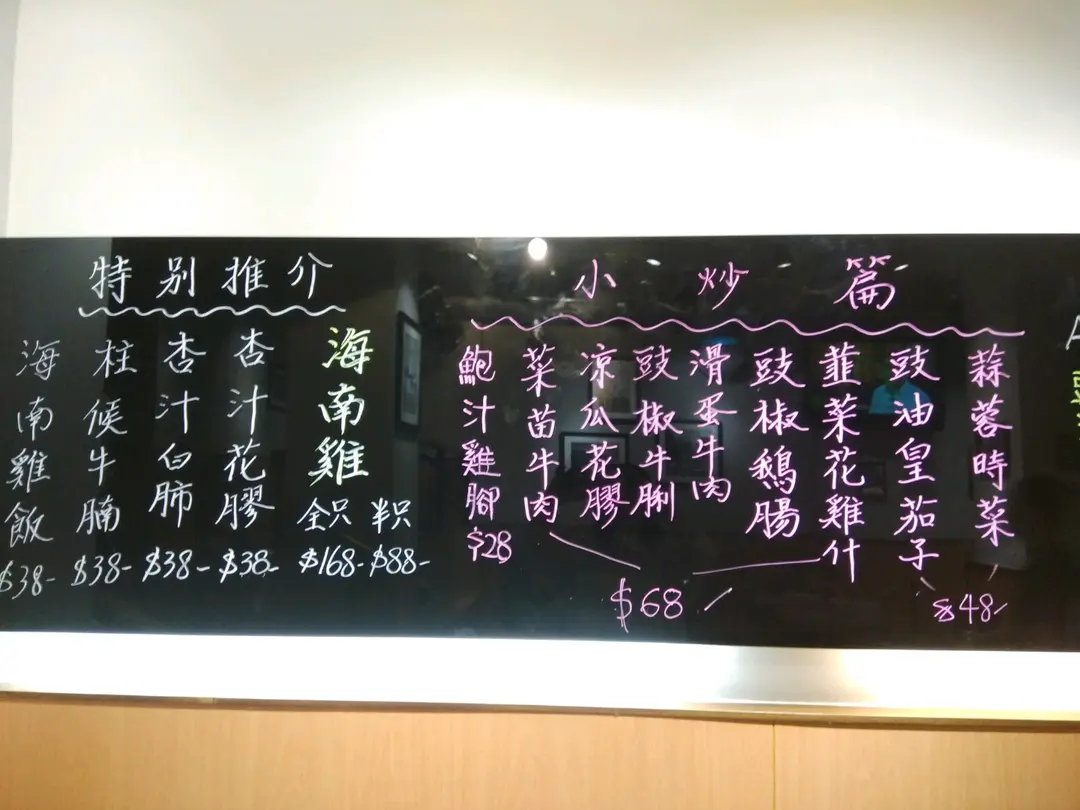 特别推介
海南雞飯
$38-
柱候牛腩
$38-
杏汁白肺
$38-
杏汁花膠
$38-
海南雞
全只
$168-
半只
$88-
小炒篇
鮑汁雞腳
$28
菜苗牛肉
凉瓜花膠
豉椒牛脷
滑蛋牛肉
豉椒鵝腸
韮菜花雞什
$68
豉油皇茄子
蒜蓉時菜
$48-